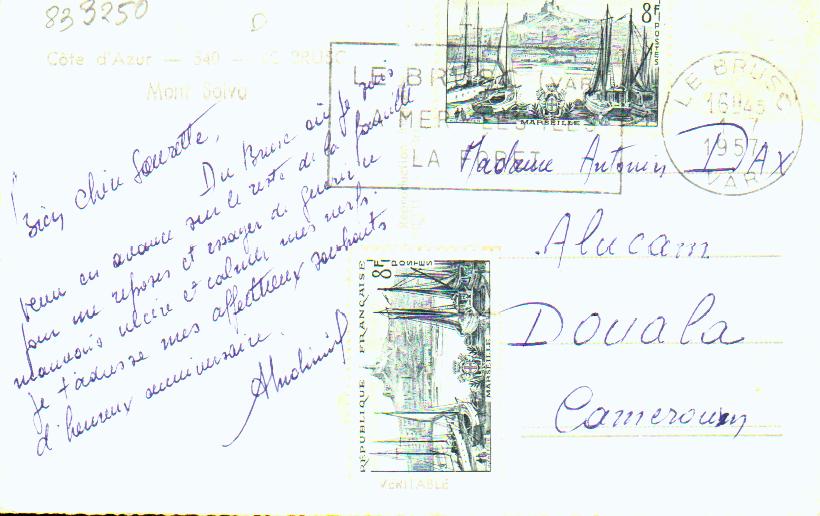 833250
Côte d'Azur — 340 — LE BRUSC
Mont Salva
8F
POSTES
MARSEILLE
LE BRUSC (VAR)
LA MER LES ILES
LA FORET
LE BRUSC
16H45
1957
VAR
Bien Chère Sourette,
Du Brusc où je suis
venu en avance sur le reste de la famille
pour me reposer et essayer de guérir ce
mauvais ulcère et calmer mes nerfs.
Je t'adresse mes affectueux souhaits
d'heureux anniversaire.
Madame Antonin DAX
Alucam
Douala
Cameroun
8F
POSTES
RÉPUBLIQUE FRANÇAISE
MARSEILLE
VÉRITABLE